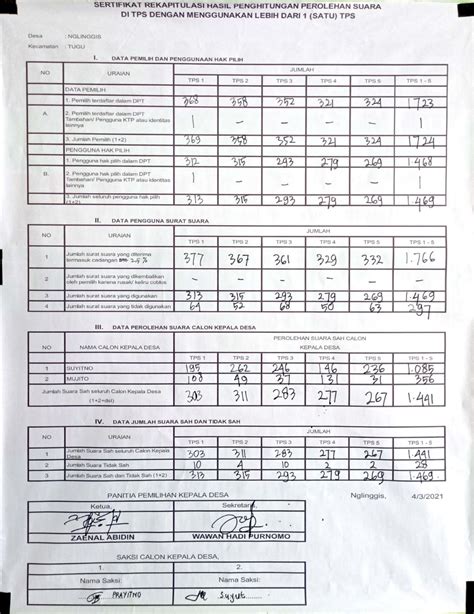 SERTIFIKAT REKAPITULASI HASIL PENGHITUNGAN PEROLEHAN SUARA
DI TPS DENGAN MENGGUNAKAN LEBIH DARI 1 (SATU) TPS
Desa : NGLINGGIS
Kecamatan : TUGU
I. DATA PEMILIH DAN PENGGUNAAN HAK PILIH
NO URAIAN JUMLAH
TPS 1 TPS 2 TPS 3 TPS 4 TPS 5 TPS 1 - 5
DATA PEMILIH
A. 1. Pemilih terdaftar dalam DPT 368 358 352 321 324 1723
2. Pemilih terdaftar dalam DPT Tambahan/ Pengguna KTP atau identitas lainnya 1 - - - - 1
3. Jumlah Pemilih (1+2) 369 358 352 321 324 1724
PENGGUNA HAK PILIH
B. 1. Pengguna hak pilih dalam DPT 312 315 293 279 269 1.468
2. Pengguna hak pilih dalam DPT Tambahan/ Pengguna KTP atau identitas lainnya 1 - - - - 1
3. Jumlah seluruh pengguna hak pilih (1+2) 313 315 293 279 269 1.469
II. DATA PENGGUNA SURAT SUARA
NO URAIAN JUMLAH
TPS 1 TPS 2 TPS 3 TPS 4 TPS 5 TPS 1 - 5
1 Jumlah surat suara yang diterima termasuk cadangan 2,5 % 377 367 361 329 332 1.766
2 Jumlah surat suara yang dikembalikan oleh pemilih karena rusak/ keliru coblos - - - - - -
3 Jumlah surat suara yang digunakan 313 315 293 279 269 1.469
4 Jumlah surat suara yang tidak digunakan 64 52 68 50 63 297
III. DATA PEROLEHAN SUARA CALON KEPALA DESA
NO NAMA CALON KEPALA DESA PEROLEHAN SUARA SAH CALON
KEPALA DESA
TPS 1 TPS 2 TPS 3 TPS 4 TPS 5 TPS 1 - 5
1 SUYITNO 195 262 246 146 236 1.085
2 MUJITO 108 49 37 131 31 356
Jumlah Suara Sah seluruh Calon Kepala Desa (1+2+dst) 303 311 283 277 267 1.441
IV. DATA JUMLAH SUARA SAH DAN TIDAK SAH
NO URAIAN JUMLAH
TPS 1 TPS 2 TPS 3 TPS 4 TPS 5 TPS 1 - 5
1 Jumlah Suara Sah seluruh Calon Kepala Desa 303 311 283 277 267 1.441
2 Jumlah Suara Tidak Sah 10 4 10 2 2 28
3 Jumlah Suara Sah dan Tidak Sah (1+2) 313 315 293 279 269 1.469
PANITIA PEMILIHAN KEPALA DESA Nglinggis, 4/3/2021
Ketua, Sekretaris,
ZAENAL ABIDIN WAWAN HADI PURNOMO
SAKSI CALON KEPALA DESA,
1. 2.
Nama Saksi: Nama Saksi:
PRAYITNO Suyut